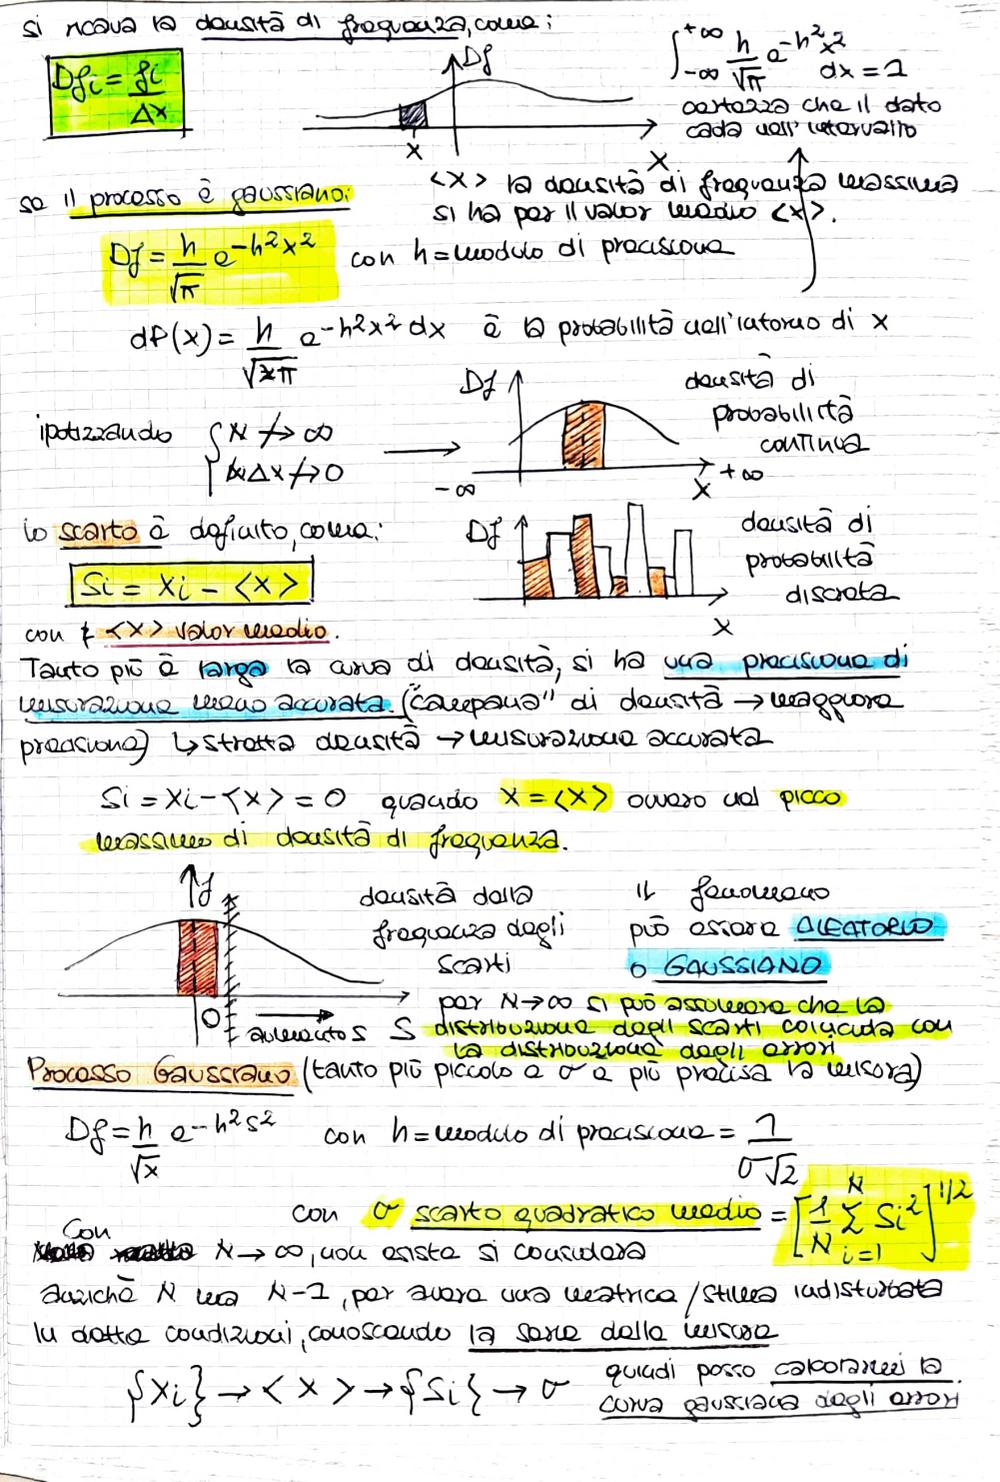 si ricava la densità di frequenza, come:
Dfi = fi / Δx
Df
x
X
∫ -∞ +∞ h/√π e^-h²x² dx = 1
certezza che il dato
cada nell'intervallo
<x> la densità di frequenza massima
si ha per il valor medio <x>.
se il processo è gaussiano:
Df = h/√π e^-h²x² con h = modulo di precisione
dP(x) = h/√π e^-h²x² dx è la probabilità nell'intorno di x
ipotizzando { N ↛ ∞
Δx ↛ 0
Df
-∞
+∞
x
densità di
probabilità
continua
lo scarto è definito, come:
Si = xi - <x>
con <x> valor medio.
Df
x
densità di
probabilità
discreta
Tanto più è larga la curva di densità, si ha una precisione di
misurazione meno accurata. ("campana" di densità → maggiore
precisione) ↳ stretta densità → misurazione accurata
Si = xi - <x> = 0 quando x = <x> ovvero nel picco
massimo di densità di frequenza.
f
0
aumento s
S
densità della
frequenza degli
scarti
il fenomeno
può essere ALEATORIO
o GAUSSIANO
per N → ∞ si può assumere che la
distribuzione degli scarti coincida con
la distribuzione degli errori
Processo Gaussiano (tanto più piccolo è σ e più precisa la misura)
Df = h/√x e^-h²s² con h = modulo di precisione = 1/σ√2
con σ scarto quadratico medio = [1/N Σ i=1 N Si²]^1/2
Con
N → ∞, non esiste si considera
anziché N ma N-1, per avere una metrica / stima indisturbata
In dette condizioni, conoscendo la serie delle misure
{xi} → <x> → {Si} → σ
quindi posso calcolarmi la
curva gaussiana degli errori